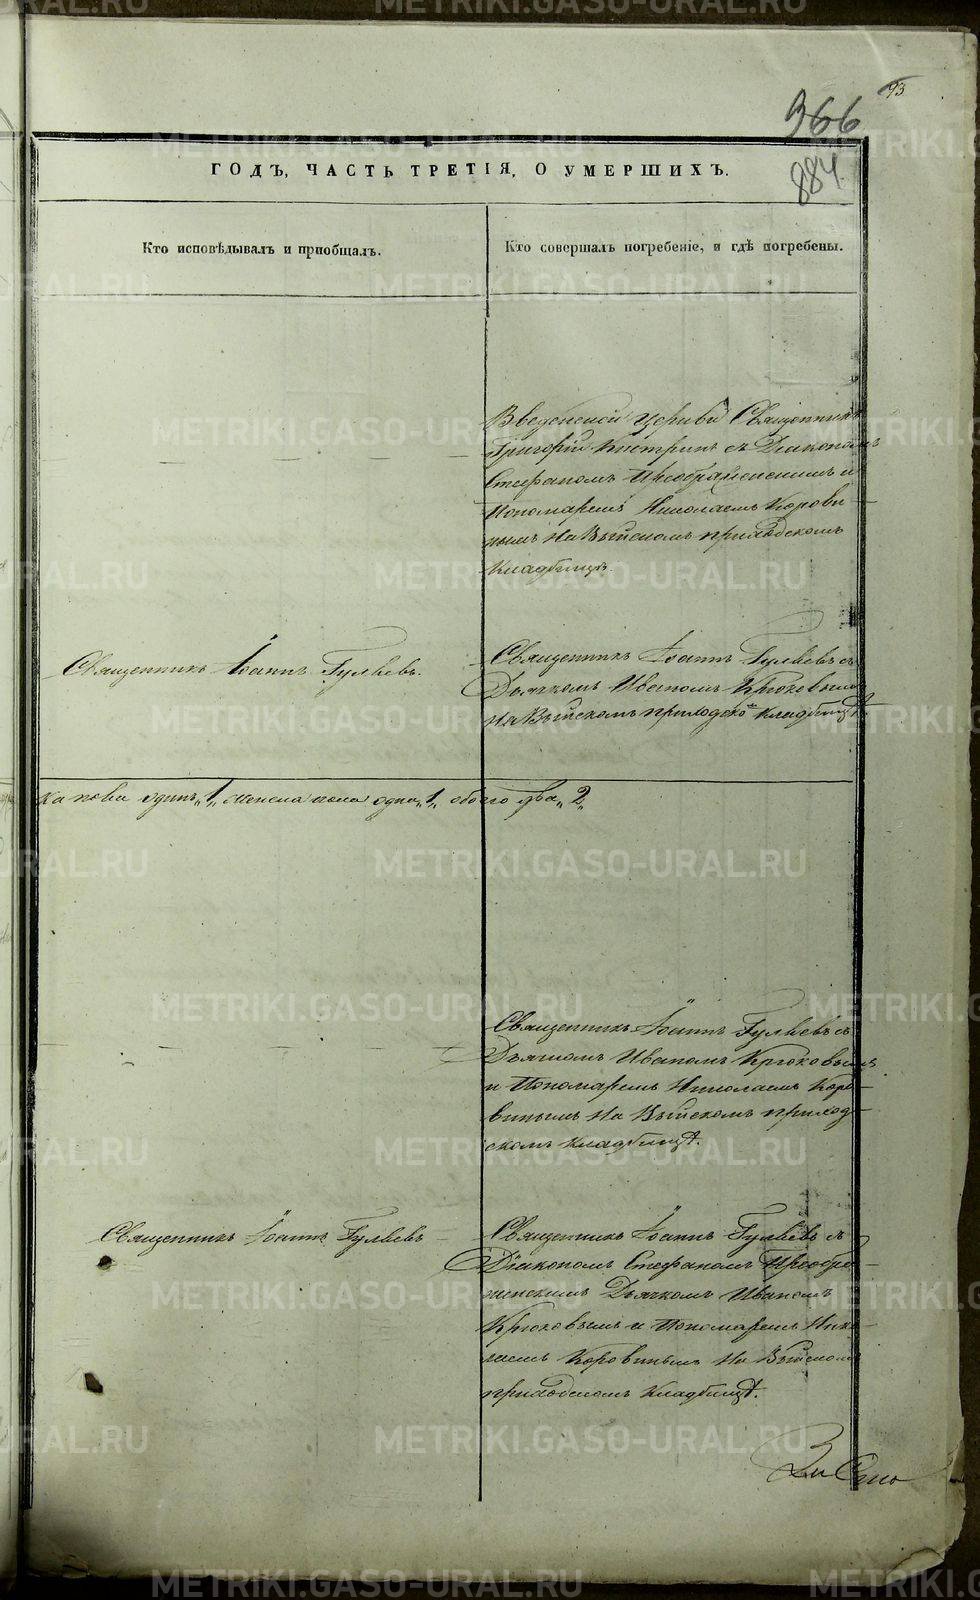 93
966
884
ГОДЪ, ЧАСТЬ ТРЕТІЯ, О УМЕРШИХЪ.
Кто исповѣдывалъ и пріобщалъ.
Кто совершалъ погребеніе, и гдѣ погребены.
Введенской Церкви Священникъ
Григорій с Діакономъ
Стефаномъ Преображенскимъ и
Пономаремъ Николаемъ Корови-
нымъ на Выйскомъ приходскомъ
Кладбищѣ.
Священникъ Іоаннъ Гуляевъ.
Священникъ Іоаннъ Гуляевъ съ
Дьячкомъ Иваномъ Крюковымъ
на Выйскомъ приходско кладбищѣ
ка пола одинъ „1„ женска пола одна „1„ обоего два „2„
Священникъ Іоаннъ Гуляевъ съ
Дьячкомъ Иваномъ Крюковымъ
и Пономаремъ Николаемъ Коро-
винымъ на Выйскомъ приход-
скомъ кладбищѣ.
Священникъ Іоаннъ Гуляевъ
Священникъ Іоаннъ Гуляевъ съ
Діакономъ Стефаномъ Преобра-
женскимъ Дьячкомъ Иваномъ
Крюковымъ и Пономаремъ Нико-
лаемъ Коровинымъ на Выйскомъ
приходскомъ Кладбищѣ.
METRIKI.GASO-URAL.RU